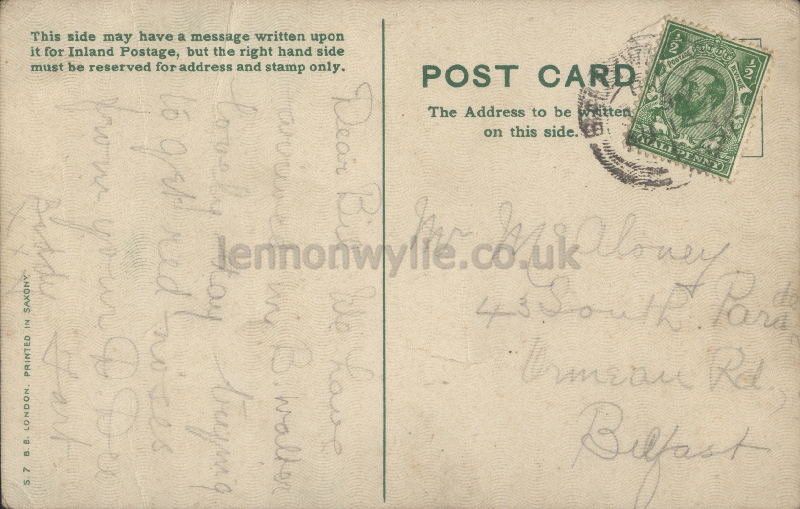 This side may have a message written upon
it for Inland Postage, but the right hand side
must be reserved for address and stamp only.
POST CARD
The Address to be written
on this side.
½ ½
POSTAGE REVENUE
HALFPENNY
Dear Bid we have
arrived in B. Walter
lovely day trying
to get red noses
from your D. Dee
Mr McAloney
43 South Parade
Ormeau Rd.,
Belfast
lennonwylie.co.uk
S. 7 B. B. LONDON. PRINTED IN SAXONY.